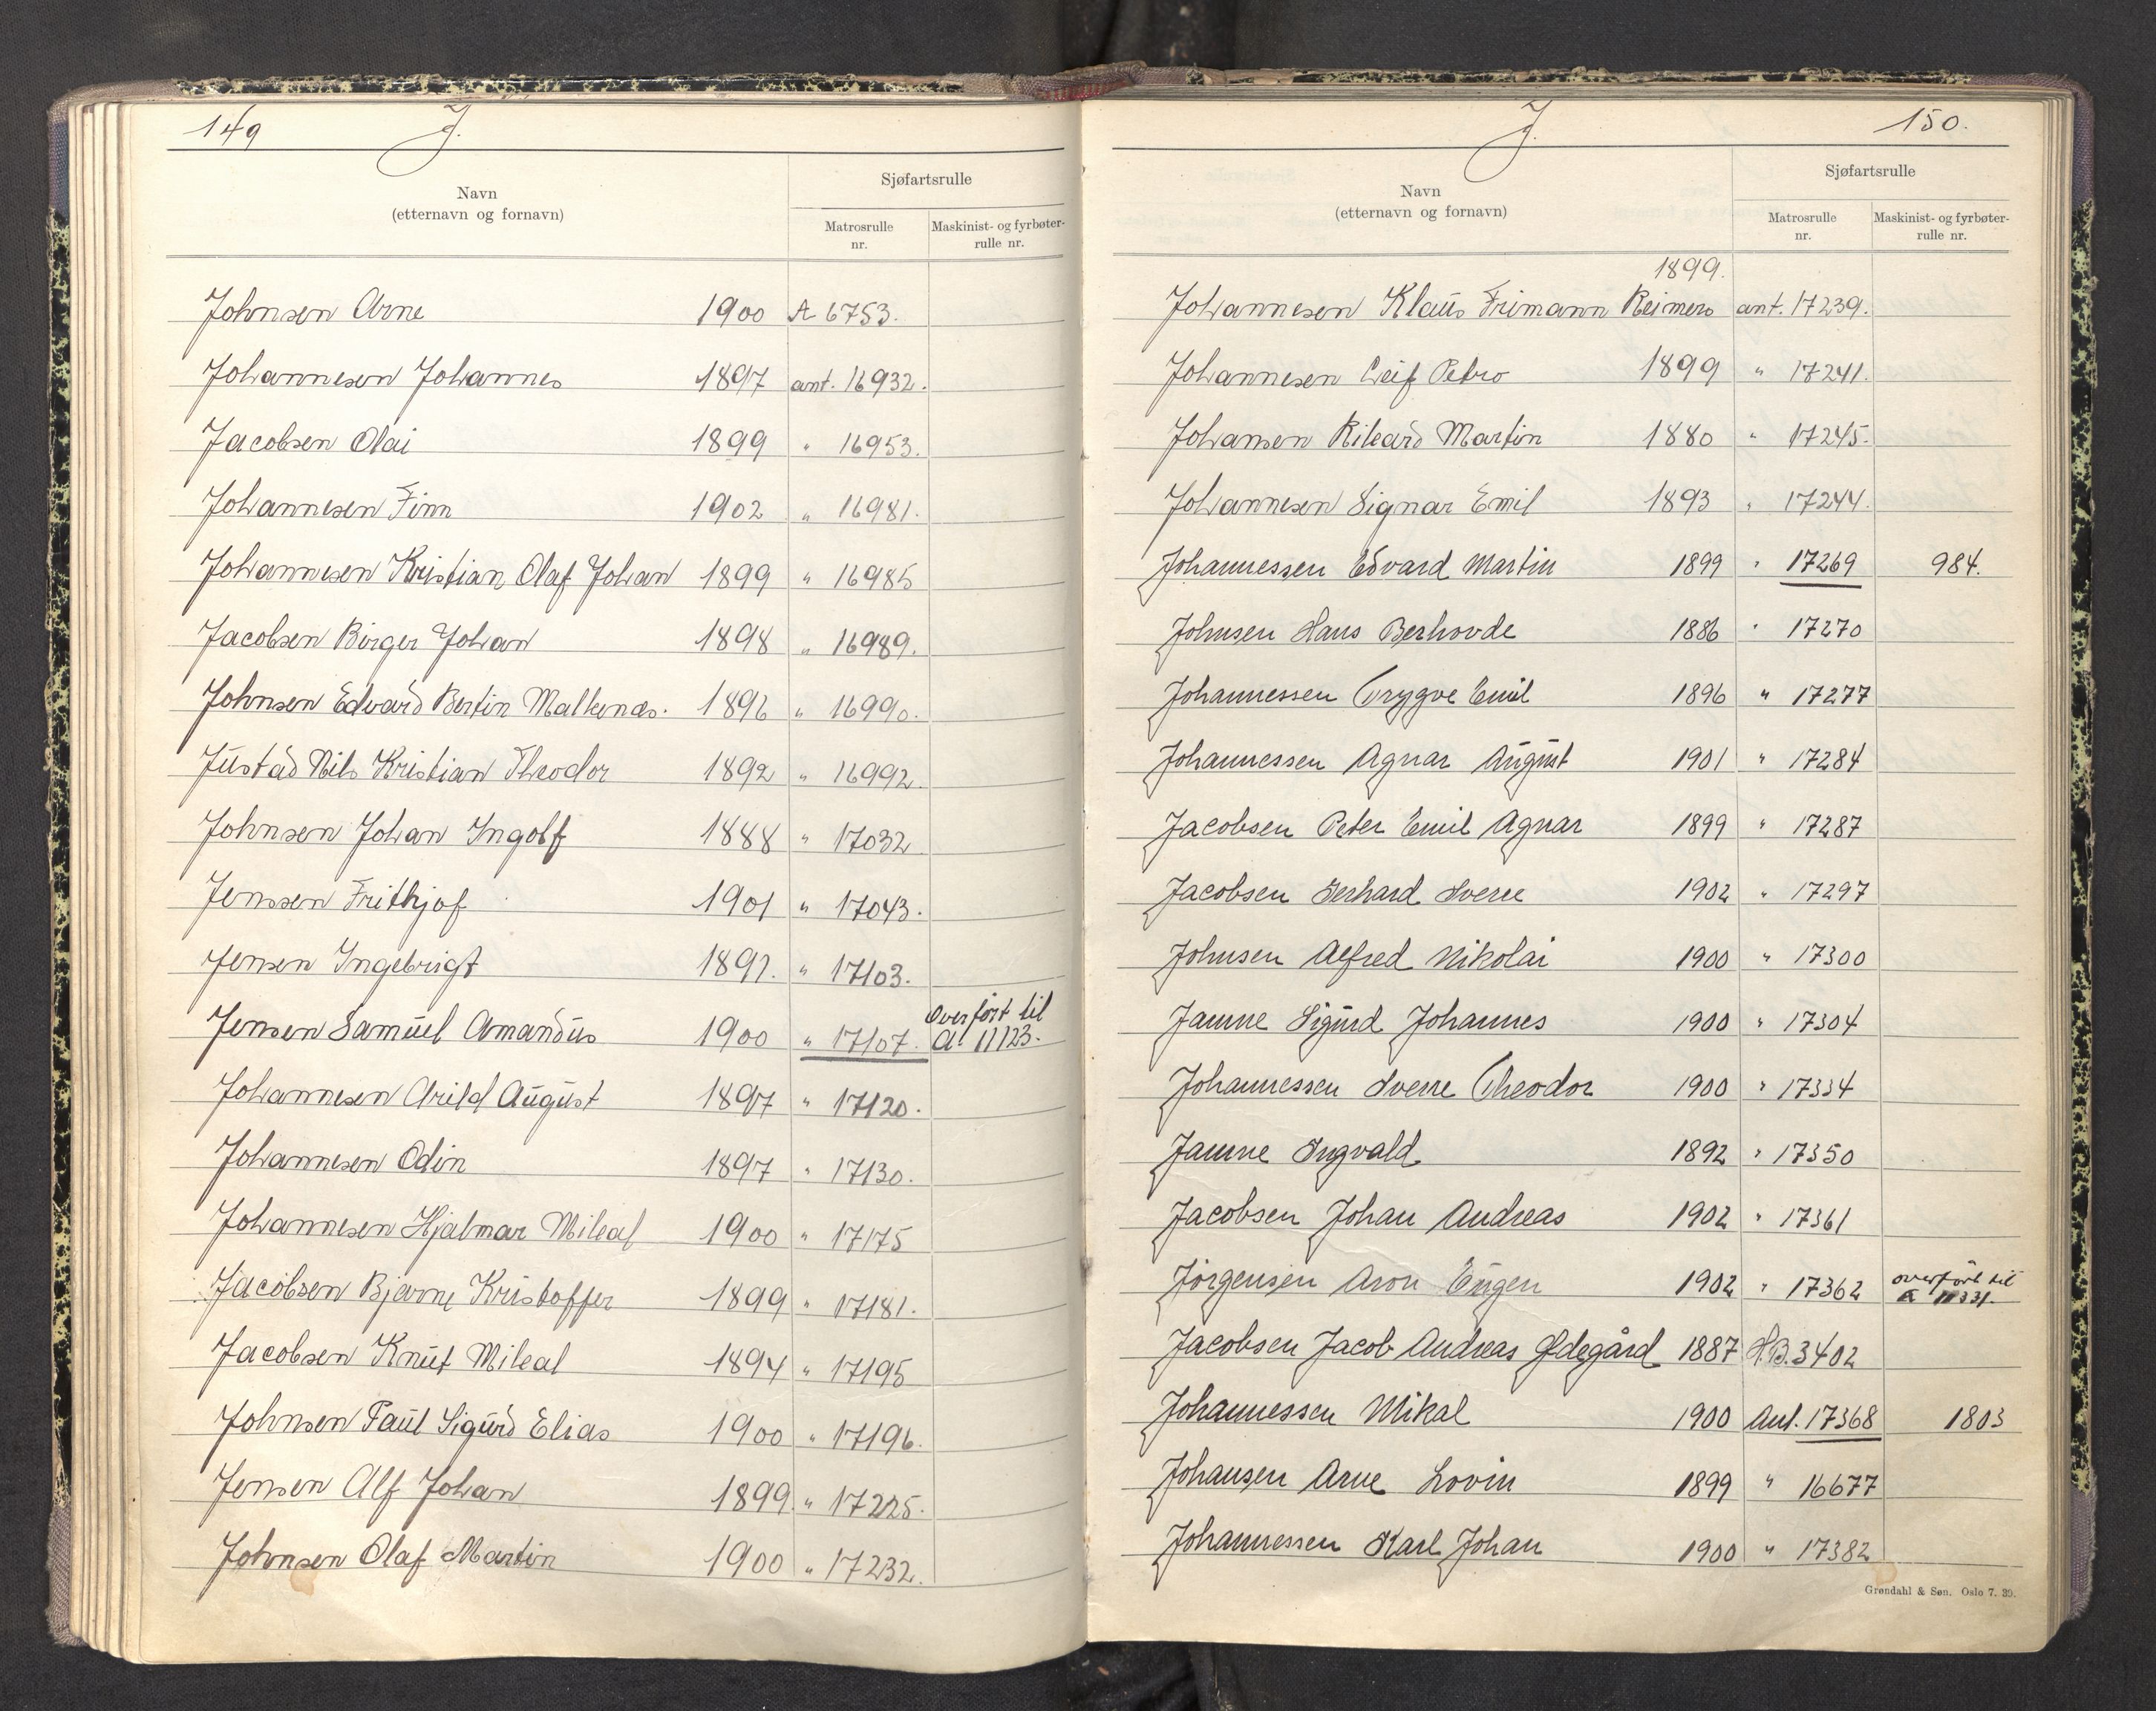 149 J.
Sjøfartsrulle
Navn
(etternavn og fornavn)
Matrosrulle nr.
Maskinist- og fyrbøter-rulle nr.
Johnsen Arne 1900 A 6753.
Johannesen Johannes 1897 ant. 16932.
Jacobsen Olai 1899 " 16953.
Johannesen Finn 1902 " 16981.
Johannesen Kristian Olaf Johan 1899 " 16985
Jacobsen Birger Johan 1898 " 16989.
Johnsen Edvard Bertin Malkenæs. 1896 " 16990.
Justad Nils Kristian Theodor 1892 " 16992.
Johnsen Johan Ingolf 1888 " 17032
Jenssen Frithjof 1901 " 17043.
Jensen Ingebrigt 1892. " 17103.
Jensen Samuel Amandus 1900 " 17107. Overført til A. 11123.
Johannesen Arild August 1897 " 17120.
Johannesen Odin 1897 " 17130.
Johannesen Hjalmar Mikal 1900 " 17175
Jacobsen Bjarne Kristoffer 1899 " 17181.
Jacobsen Knut Mikal 1894 " 17195
Johnsen Paul Sigurd Elias 1900 " 17196.
Jensen Alf Johan 1899. " 17225.
Johnsen Olaf Martin 1900 " 17232.
J. 150.
Sjøfartsrulle
Navn
(etternavn og fornavn)
Matrosrulle nr.
Maskinist- og fyrbøter-rulle nr.
1899.
Johannesen Klaus Frimann Reimers ant. 17239.
Johannesen Leif Petro 1899 " 17241.
Johansen Rikard Martin 1880 " 17245.
Johannesen Signar Emil 1893 " 17244.
Johannessen Edvard Martin 1899 " 17269 984.
Johnsen Hans Berhovde 1886 " 17270
Johannessen Trygve Emil 1896 " 17277
Johannessen Agnar August 1901 " 17284
Jacobsen Peter Emil Agnar 1899 " 17287
Jacobsen Gerhard Sverre 1902 " 17297
Johnsen Alfred Nikolai 1900 " 17300
Jamne Sigurd Johannes 1900 " 17304
Johannessen Sverre Theodor 1900 " 17334
Jamne Ingvald 1892 " 17350
Jacobsen Johan Andreas 1902 " 17361
Jörgensen Aron Eugen 1902 " 17362 overført til A 11331.
Jacobsen Jacob Andreas Ødegård 1887 H.B. 3402
Johannessen Mikal 1900 Ant. 17368 1803
Johansen Arne Lovin 1899 " 16677
Johannessen Karl Johan 1900 " 17382
Grøndahl & Søn. Oslo 7. 39.